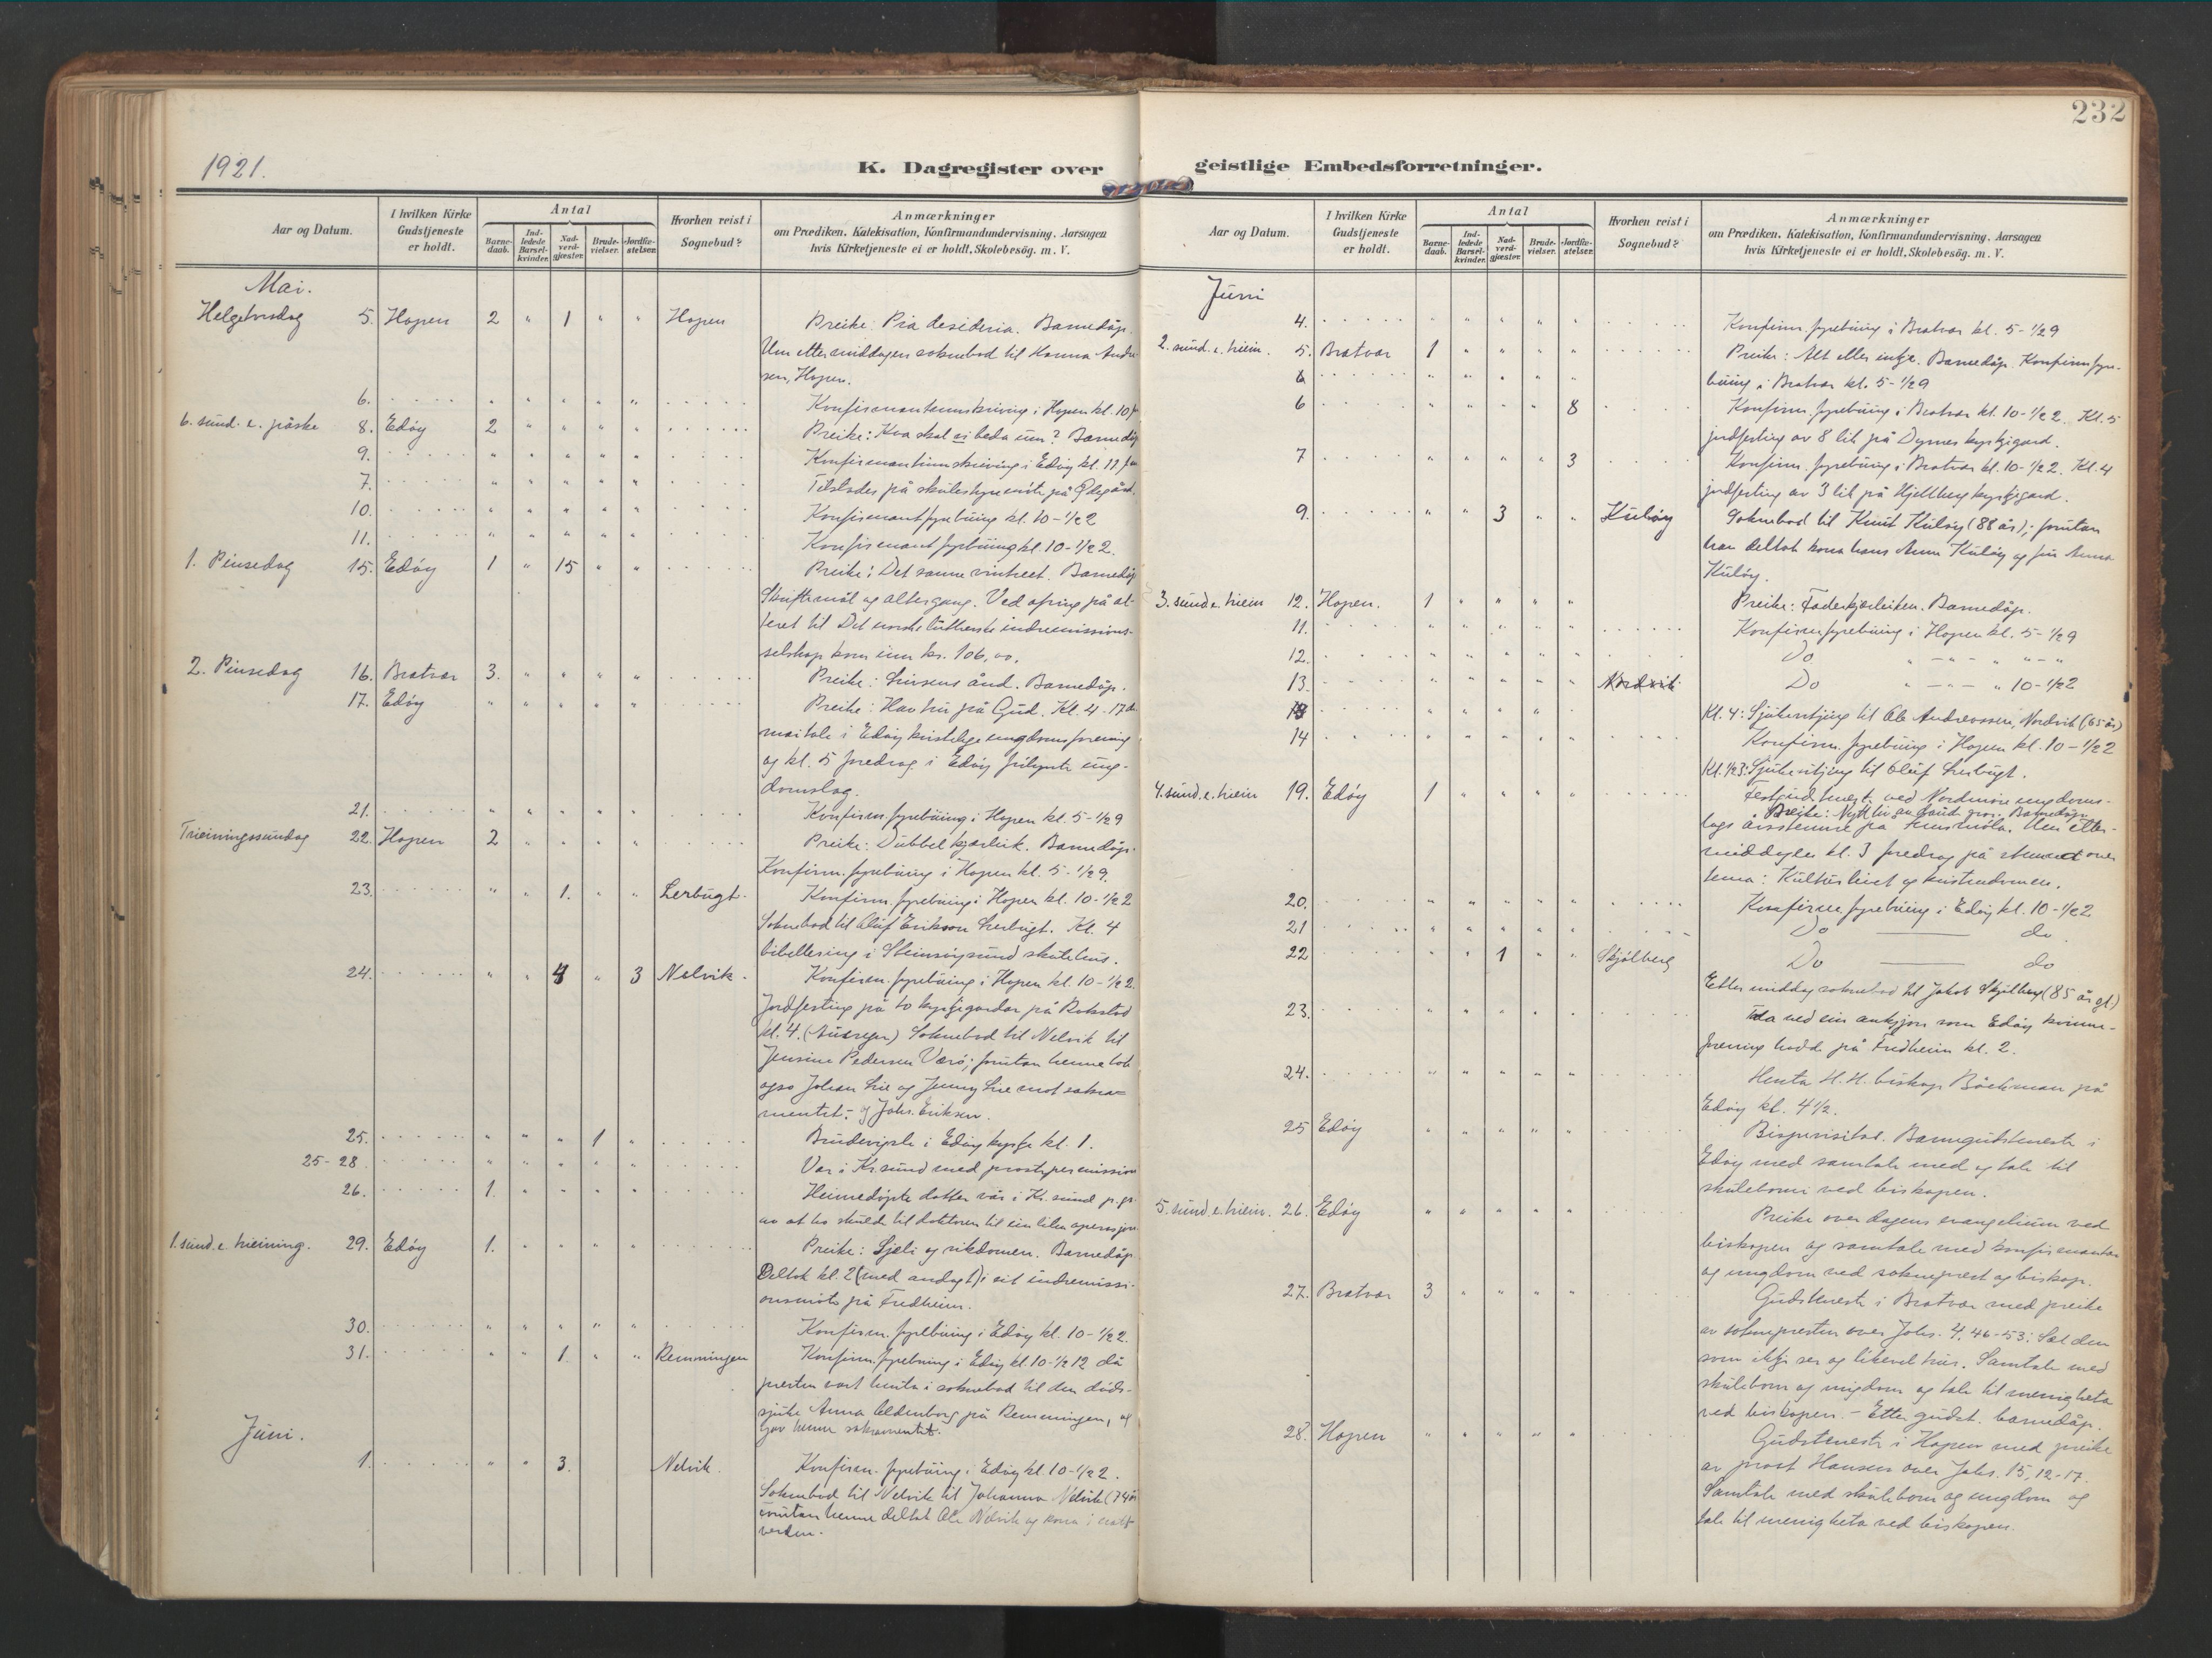 232
1921.
K. Dagregister over geistlige Embedsforretninger.
Aar og Datum. I hvilken Kirke Gudstjeneste er holdt. Antal Barnedaab. Indledede Barselkvinder. Nadverdgjæster. Brudevielser. Jordfæstelser. Hvorhen reist i Sognebud? Anmærkninger
om Prædiken, Katekisation, Konfirmandundervisning, Aarsagen
hvis Kirketjeneste ei er holdt, Skolebesög. m. V.
Mai.
Helgetorsdag 5. Hopen 2 " 1 " " Hopen Preike: Pia desideria. Barnedåp.
Um ettermiddagen soknebod til Hanna Andre-
sen, Hopen.
6. Konfirmantinnskriving i Hopen kl. 10 f.
6. sund. e. påske 8. Edöy 2 " " " " Preike: Kva skal vi beda um? Barnedåp
9. Konfirmantinnskriving i Edöy kl. 11 fm
7. Tilstades på skulestyremöte på Ödegård.
10. Konfirmantfyrebuing kl. 10-1/2 2
11. Konfirmantfyrebuing kl. 10-1/2 2.
1. Pinsedag 15. Edöy 1 " 15 " " Preike: Det sanne vintreet. Barnedåp
Skriftemål og altergang. Ved ofring på al-
teret til Det norske lutherske indremissions-
selskap kom inn kr. 106,00.
2. Pinsedag 16. Bratvar 3. " " " " Preike: Livsens ånd. Barnedåp.
17. Edöy " " " " " Preike: Hav tru på Gud. Kl. 4 17de
maitale i Edöy kristelige ungdomsforening
og kl. 5 foredrag i Edöy frilynte ung-
domslag.
21. Konfirm. fyrebuing i Hopen kl. 5-1/2 9
Trieiningssundag 22. Hopen 2 " " " " Preike: Dubbel kjærleik. Barnedåp.
Konfirm. fyrebuing i Hopen kl. 5-1/2 9.
23. " " 1. " " Lerbugt. Konfirm. fyrebuing i Hopen kl. 10-1/2 2
Soknebod til Oluf Erikson Lerbugt. Kl. 4
bibellesing i Steinsöysund skulehus.
24. " " 4 " 3 Nelvik. Konfirm. fyrebuing i Hopen kl. 10-1/2 2.
Jordfesting på to kyrkjegardar på Rokstad
kl. 4. Soknebod til Nelvik til
Jensine Pedersen Værö; forutan henne tok
ogso Johan Lie og Jenny Lie mot sakra=
mentet; og Johs. Eriksen.
25. " " " 1 " Brudevigsle i Edöy kyrkje kl. 1.
25-28. Var i Kr.sund med prostepermission
26. 1. " " " " Heimedöpte dotter vår i Kr.sund p. gr.
av at ho skulde til doktoren til ein liten operasjon
1. sund. e. trieining. 29. Edöy 1. " " " " Preike: Sjeli og rikdomen. Barnedåp
Deltok kl. 2 (med andagt) i eit indremissi-
onsmöte på Fredheim.
30. Konfirm. fyrebuing i Edöy kl. 10-1/2 2.
31. " " 1. " " Remmingen Konfirm. fyrebuing i Edöy kl. 10-1/2 12 då
presten vart henta i soknebod til den döds-
sjuke Anna Oldenborg på Remmingen, og
gav henne sakramentet.
Juni.
1. " " 3. Nelvik. Konfirm. fyrebuing i Edöy kl. 10-1/2 2.
Soknebod til Nelvik til Johanna Nelvik (74 år
forutan henne deltok Ole Nelvik og kona i natt-
verden.
Aar og Datum. I hvilken Kirke Gudstjeneste er holdt. Antal Barnedaab. Indledede Barselkvinder. Nadverdgjæster. Brudevielser. Jordfæstelser. Hvorhen reist i Sognebud? Anmærkninger
om Prædiken, Katekisation, Konfirmandundervisning, Aarsagen
hvis Kirketjeneste ei er holdt, Skolebesög. m. V.
Juni
4. Konfirm. fyrebuing i Bratvar kl. 5-1/2 9
2. sund. e. triein. 5. Bratvar 1 " " " " Preike: Alt eller intje. Barnedåp. Konfirm fyre-
buing i Bratvar kl. 5-1/2 9
6 " " " " 8 Konfirm. fyrebuing i Bratvar kl. 10-1/2 2. Kl. 5
jordfesting av 8 lik på Dyrnes kyrkjegard.
7 " " " " 3 Konfirm. fyrebuing i Bratvar kl. 10-1/2 2. Kl. 4
jordfesting av 3 lik på Hjellberg kyrkjegard.
9. " " 3 " " Kulöy Soknebod til Knut Kulöy (88 år); forutan
han deltok kona hans Anne Kulöy og fru Anna
Kulöy.
3. sund e. triein 12. Hopen. 1 " " " " Preike: Faderkjærleiken. Barnedåp.
11. Konfirm. fyrebuing i Hopen kl. 5-1/2 9
12. Do " - " - " " - "
13. Nordvik Do " - " - " 10-1/2 2
13 Kl. 4: Sjukevitjing til Ole Andreassen, Nordvik (65 år)
14 Konfirm. fyrebuing i Hopen kl. 10-1/2 2
Kl. 1/2 3: Sjukevitjing til Oluf Lerbugt.
4. sund. e. triein 19. Edöy 1 " " " " Festgudstenest ved Nordmöre ungdoms-
Preike: Nytt liv av daud gror. Barnedåp.
lags årsstemne på Smöla. Um etter-
middagen kl. 3 foredrag på stemnet over
tema: Kulturlivet og kristendomen.
20. Konfirm. fyrebuing i Edöy kl. 10-1/2 2
21 Do do.
22 " " 1 " " Skjölberg Do do
Ettermiddag soknebod til Jakob Skjölberg (85 år gl.)
23. Tala ved ein auksjon som Edöy kvinne-
forening hadd på Fredheim kl. 2.
24. Henta H. H. biskop Böckman på
Edöy kl. 4 1/2.
25 Edöy " " " " " Bispevisitas. Barnegudsteneste i
Edöy med samtale med og tale til
skuleborni ved biskopen.
5. sund. e. triein. 26. Edöy " " " " " Preike over dagens evangelium ved
biskopen og samtale med konfirmantar
og ungdom ved sokneprest og biskop.
27. Bratvar 3 " " " " Gudsteneste i Bratvar med preike
av soknepresten over Johs. 4, 46-53: Sæl den
som ikkje ser og likevel trur. Samtale med
skuleborn og ungdom og tale til menigheta
ved biskopen. - Etter gudst. barnedåp.
28. Hopen " " " " " Gudsteneste i Hopen med preike
av prost Hansen over Johs. 15, 12-17.
Samtale med skuleborn og ungdom og
tale til menigheta ved biskopen.